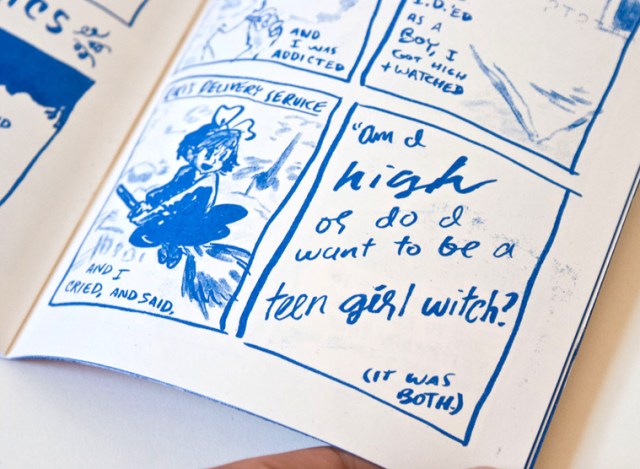 ICS
AND
I WAS
ADDICTED
I.D.'ED
AS A
BOY, I
GOT HIGH
+ WATCHED
DELIVERY SERVICE
AND I
CRIED, AND SAID,
"Am I
high
or do I
want to be a
teen girl witch?
(IT WAS
BOTH.)